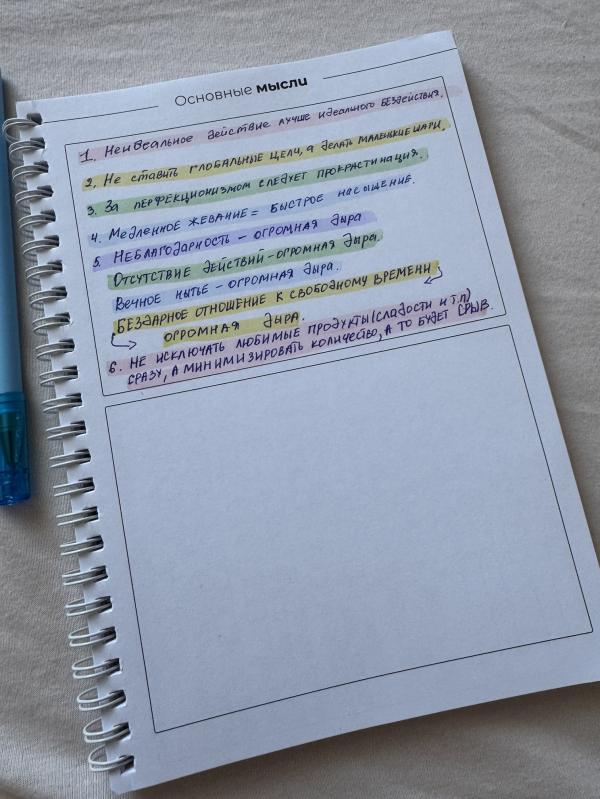 Основные мысли
1. Неидеальное действие лучше идеального бездействия.
2. Не ставить глобальные цели, а делать маленькие шаги.
3. За перфекционизмом следует прокрастинация.
4. Медленное жевание = быстрое насыщение.
5. Неблагодарность – огромная дыра
Отсутствие действий – огромная дыра.
Вечное нытье – огромная дыра.
Бездарное отношение к свободному времени
огромная дыра.
6. Не исключать любимые продукты (сладости и т.п)
сразу, а минимизировать количество, а то будет срыв.